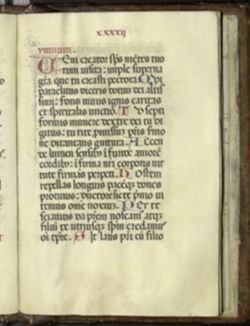 xxxxij
ymnum.
Eni creator sps mētes tuo
rum visita: imple superna
gra que tu creasti pectora Qui
paraclitus diceris donum dei altis
simi: fons vivus ignis caritas
et spiritalis unctio. Tu septi
formis munere dextre dei tu di
gitus: tu rite promissum pris sermo
ne ditans guttura. Accen
de lumen sensibus: ifunde amorē
cordibus: ifirma nri corporis vir
tute firmans perpeti. Hostem
repellas longius pacēque dones
protinus: ductore sic te previo vi
temus omne noxium. Per te
sciamus da prem noscam atque
filium te utriusque spm credamus
oi tpre. Sit laus pri cū filio